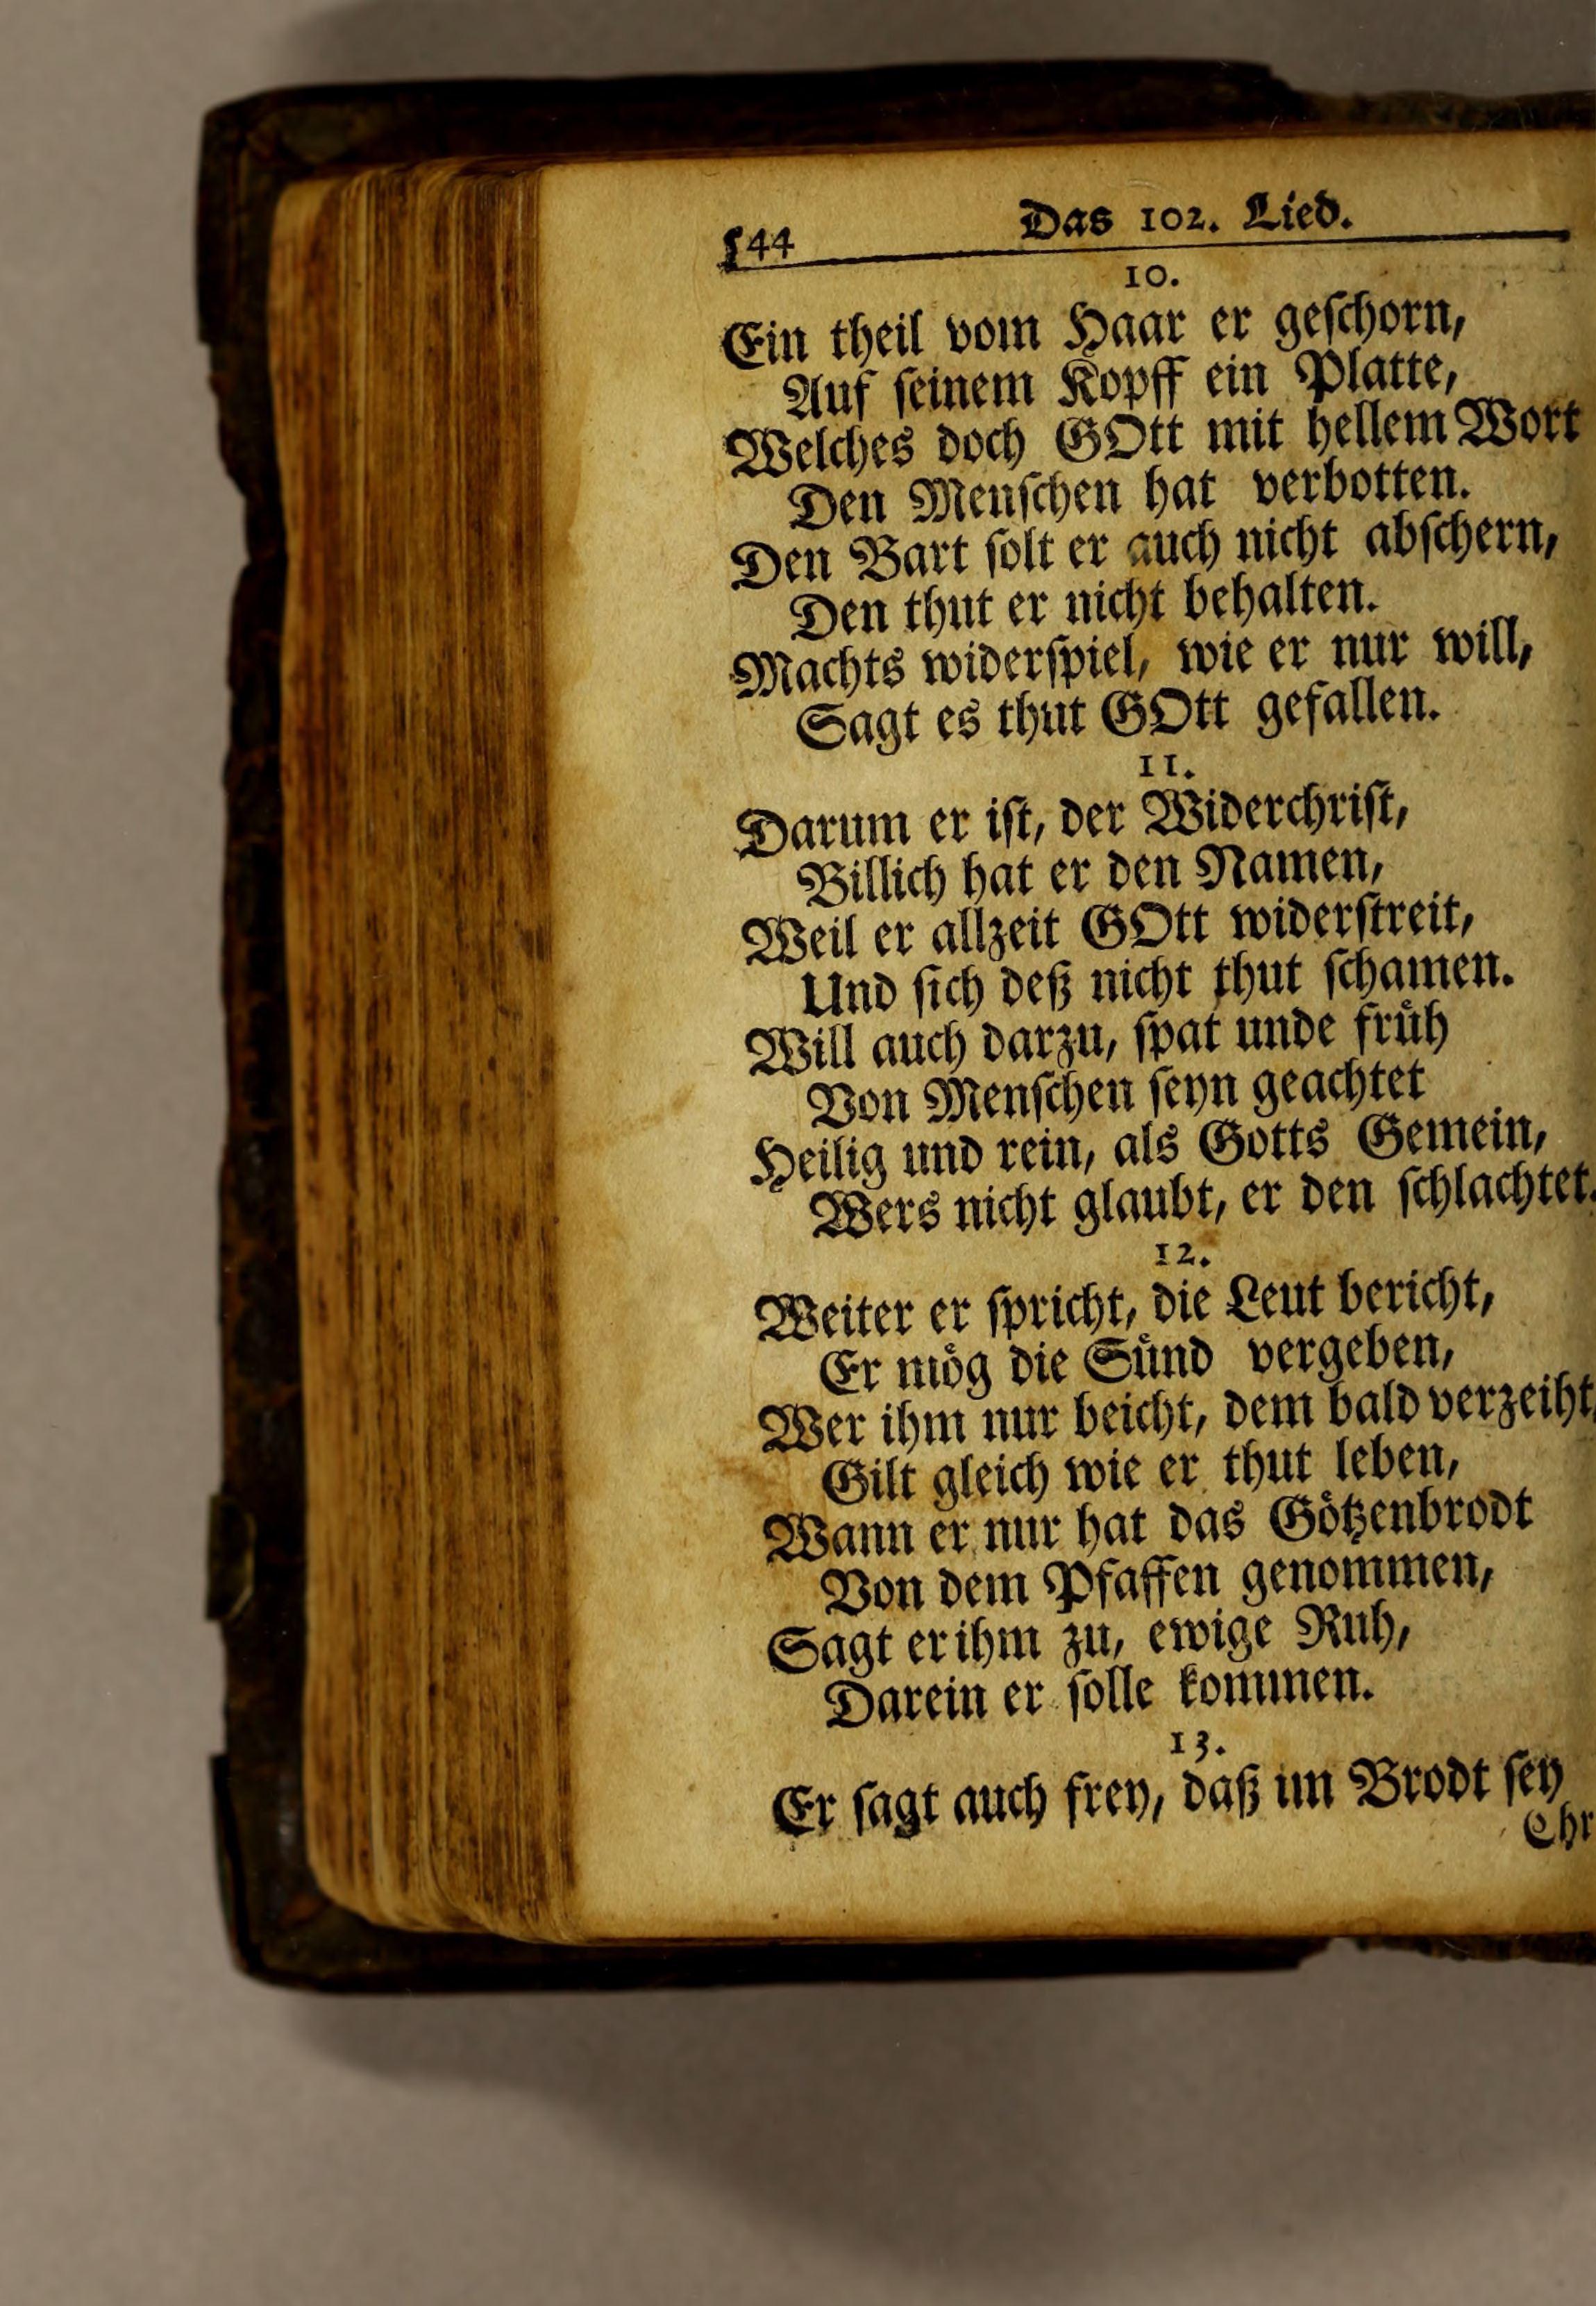 544 Das 102. Lied.
10.
Ein theil vom Haar er geſchorn,
Auf ſeinem Kopff ein Platte,
Welches doch GOtt mit hellem Wort
Den Menſchen hat verbotten.
Den Bart ſolt er auch nicht abſchern,
Den thut er nicht behalten.
Machts widerſpiel, wie er nur will,
Sagt es thut GOtt gefallen.
11.
Darum er iſt, der Widerchriſt,
Billich hat er den Namen,
Weil er allzeit GOtt widerſtreit,
Und ſich deß nicht thut ſchamen.
Will auch darzu, ſpat unde fruͤh
Von Menſchen ſeyn geachtet
Heilig und rein, als Gotts Gemein,
Wers nicht glaubt, er den ſchlachtet.
12.
Weiter er ſpricht, die Leut bericht,
Er moͤg die Suͤnd vergeben,
Wer ihm nur beicht, dem bald verzeiht,
Gilt gleich wie er thut leben,
Wann er nur hat das Goͤtzenbrodt
Von dem Pfaffen genommen,
Sagt er ihm zu, ewige Ruh,
Darein er ſolle kommen.
13.
Er ſagt auch frey, daß im Brodt ſey
Chr